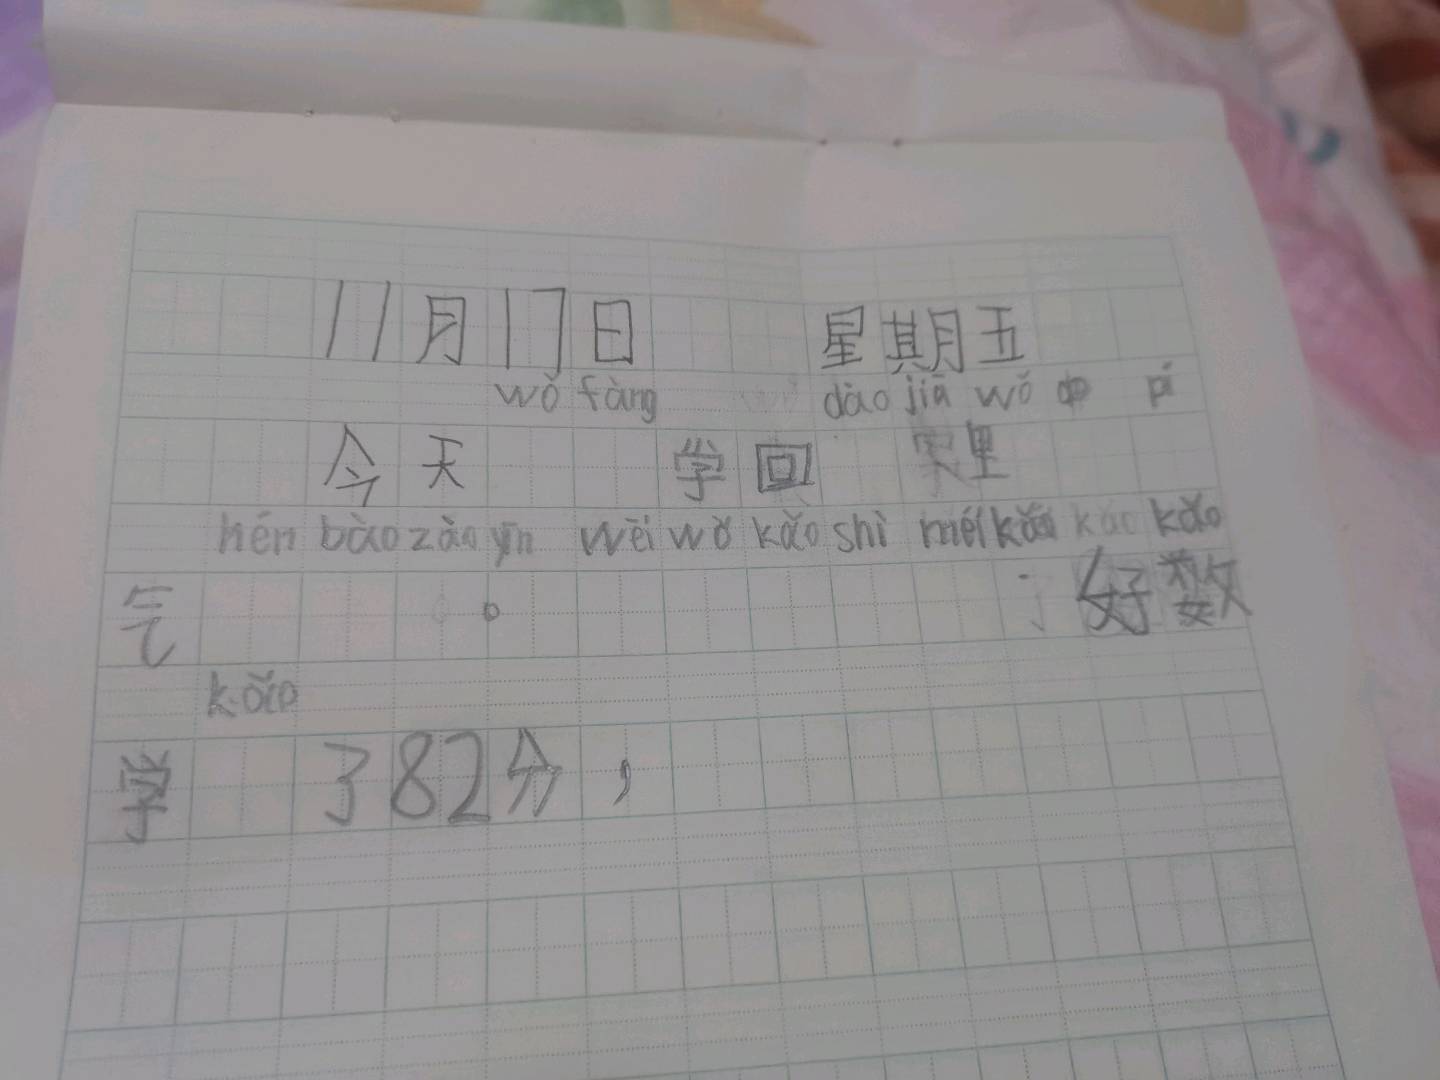 11月17日 星期五
wǒ fàng dào jiā wǒ pí
今天 学回 家里
hén bào zào yīn wèi wǒ kǎo shì méi kǎo kǎo
气 。 好数
kǎo
学 382分,